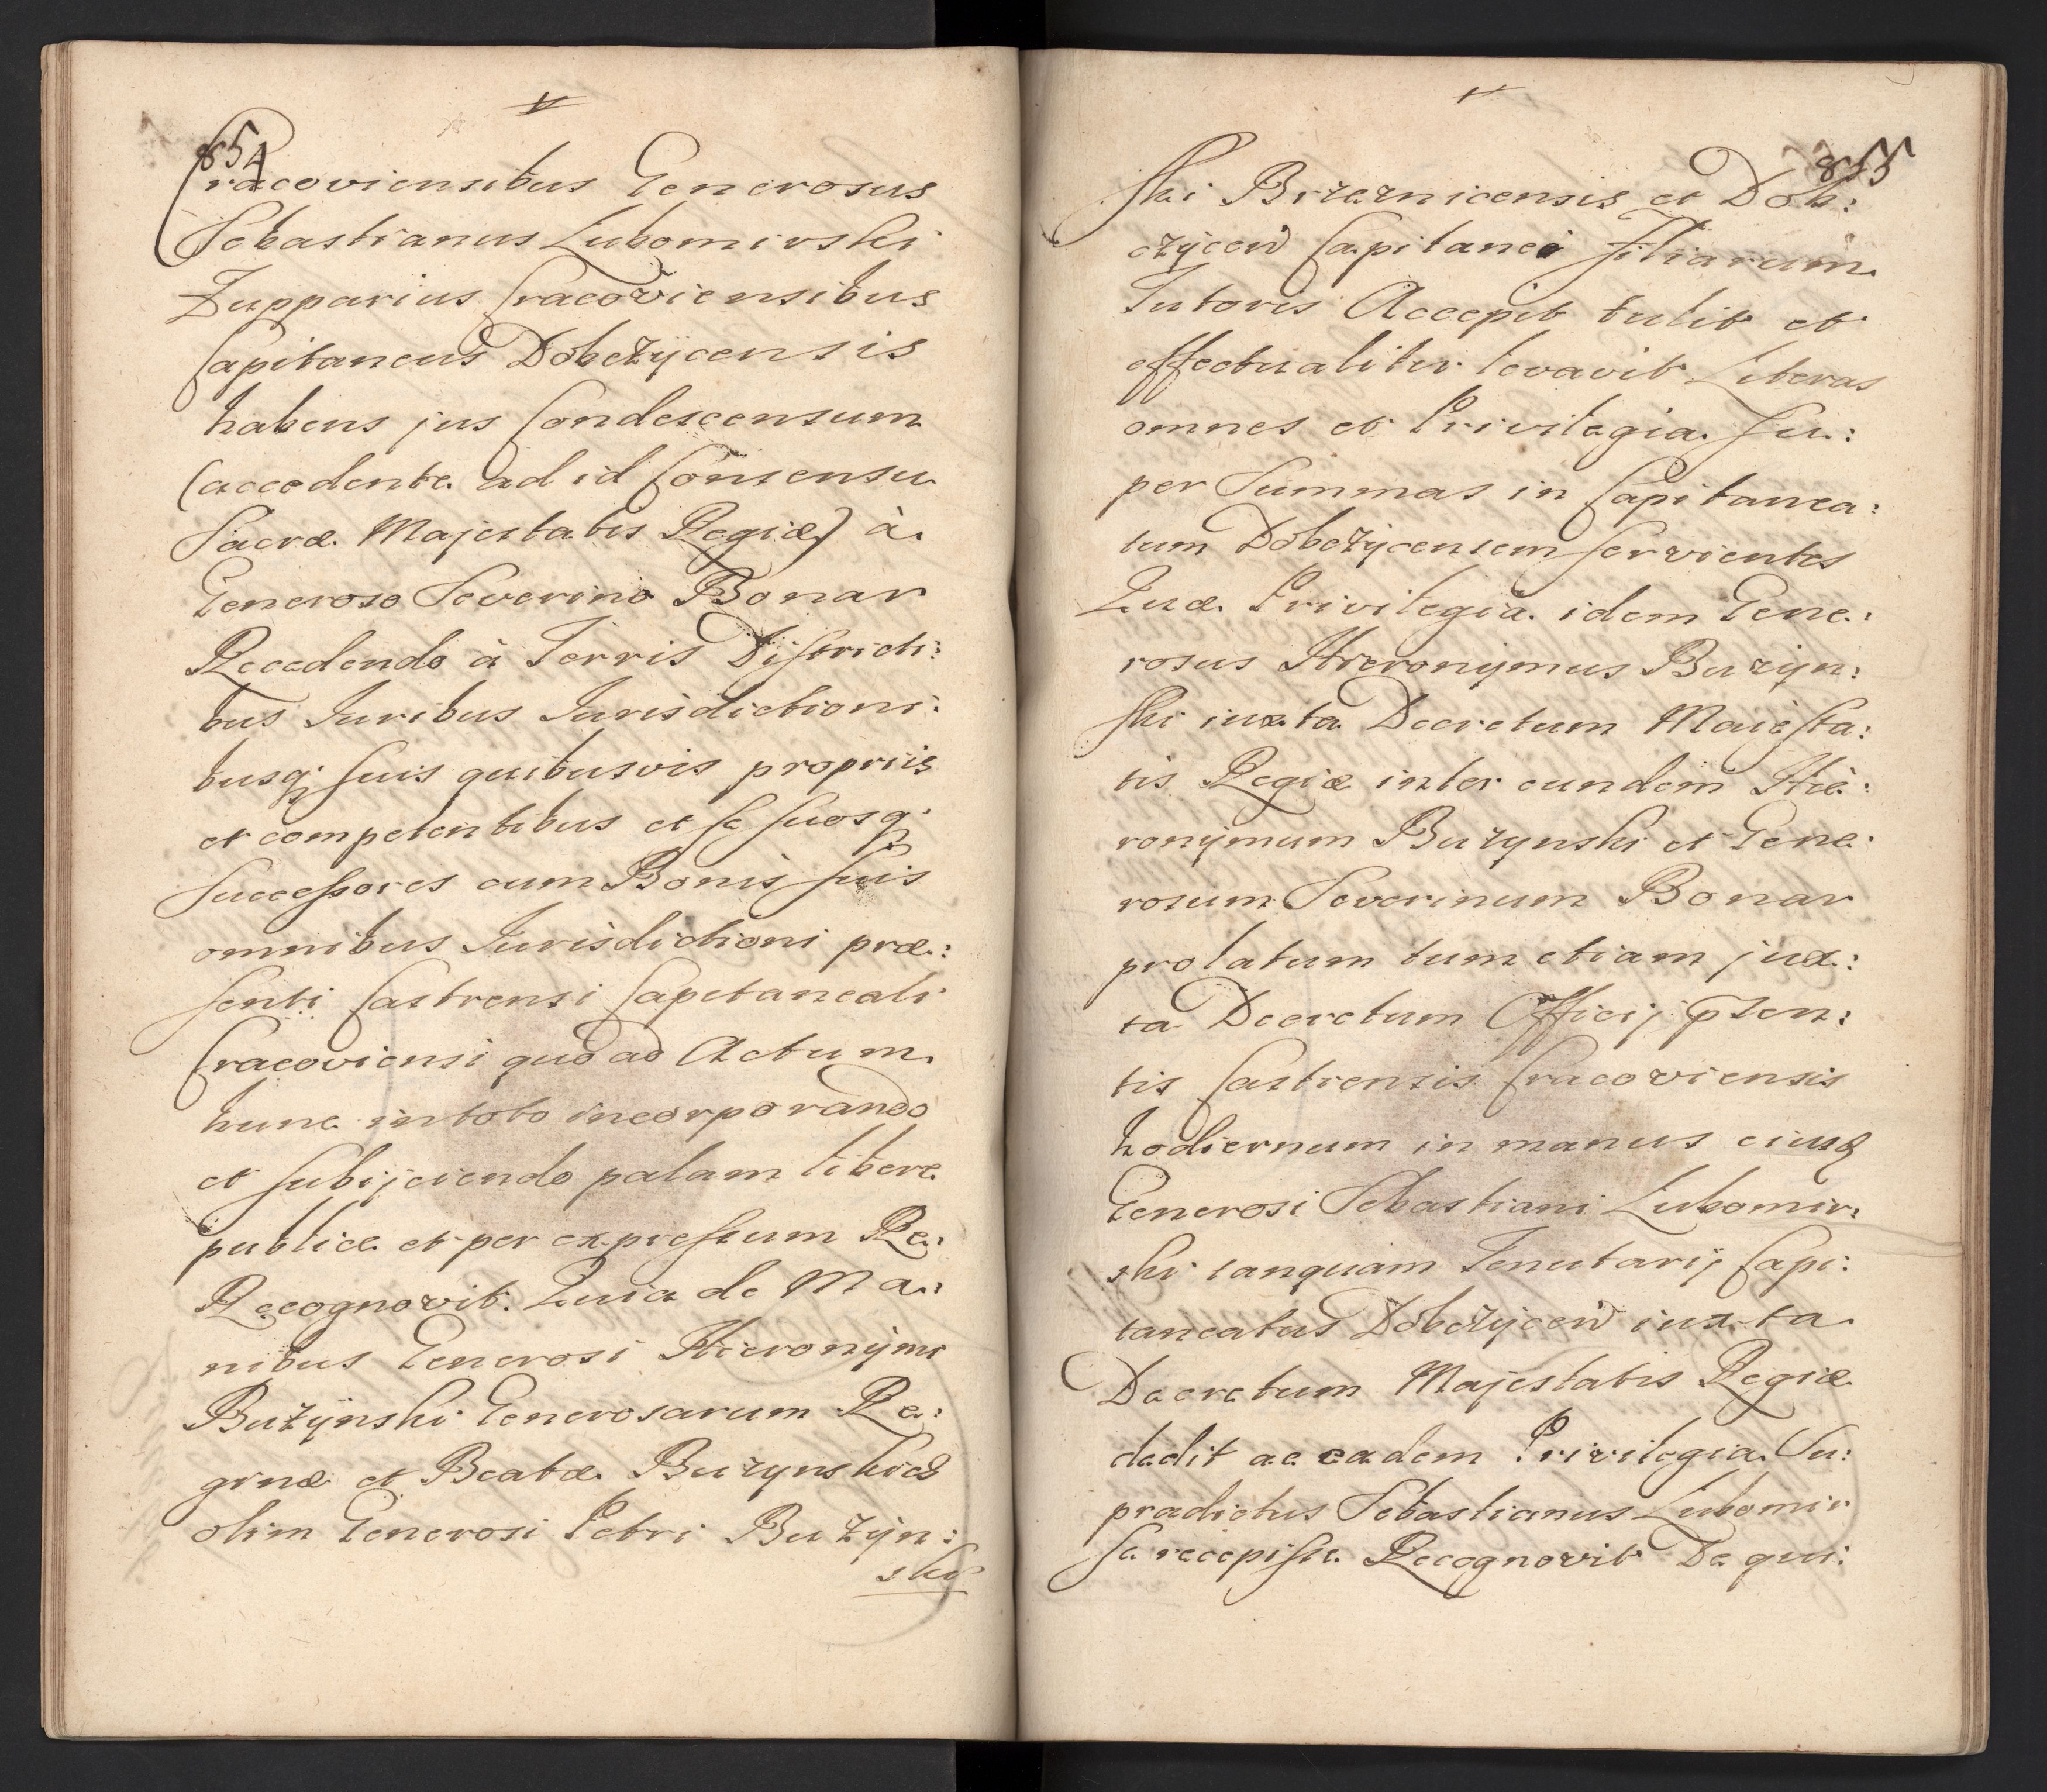 854
Cracoviensibus Generosus
Sebastianus Lubomirski
Zupparius Cracoviensibus
Capitaneus Dobczÿcensis
habens jus Condescensum
(accedente ad id Consensu
Sacræ Majestatis Regiæ) à
Generoso Severino Bonar
Recedendo à Terris Districti:
bus Juribus Jurisdictioni:
busq; suis quibusvis propriis
et competentibus et se suosq;
Successores cum Bonis suis
omnibus Jurisdictioni præ:
senti Castrensi Capitaneali
Cracoviensi quo ad Actum
hunc in toto incorporando
et subijciendo palam libere
publice et per expressum Re:
Recognovit. Quia de Ma:
nibus Generosi Hieronÿmi
Bużÿnski Generosarum Re:
ginæ et Beatæ Bużynskich
olim Generosi Petri Bużÿn:
ski
855
ski Brzeznicensis et Dob:
czÿcen Capitanei filiarum
Tutoris Accepit tulit et
effectualiter levavit Literas
omnes et Privilegia su:
per Summas in Capitanea:
tum Dobczÿcensem servientes
Quæ Privilegia idem Gene:
rosus Hieronÿmus Buzÿn:
ski iuxta Decretum Majesta:
tis Regiæ inter eundem Hie:
ronÿmum Buzynski et Gene:
rosum Severinum Bonar
prolatum tum etiam jux:
ta Decretum Officij pꝛsen:
tis Castrensis Cracoviensis
hodiernum in manus eiusd
Generosi Sebastiani Lubomir:
ski tanquam Tenutarij Capi:
taneatus Dobczÿcen iuxta
Decretum Majestatis Regiæ
dedit ac eadem Privilegia Su:
pradictus Sebastianus Lubomir
se recepisse Recognovit De qui: